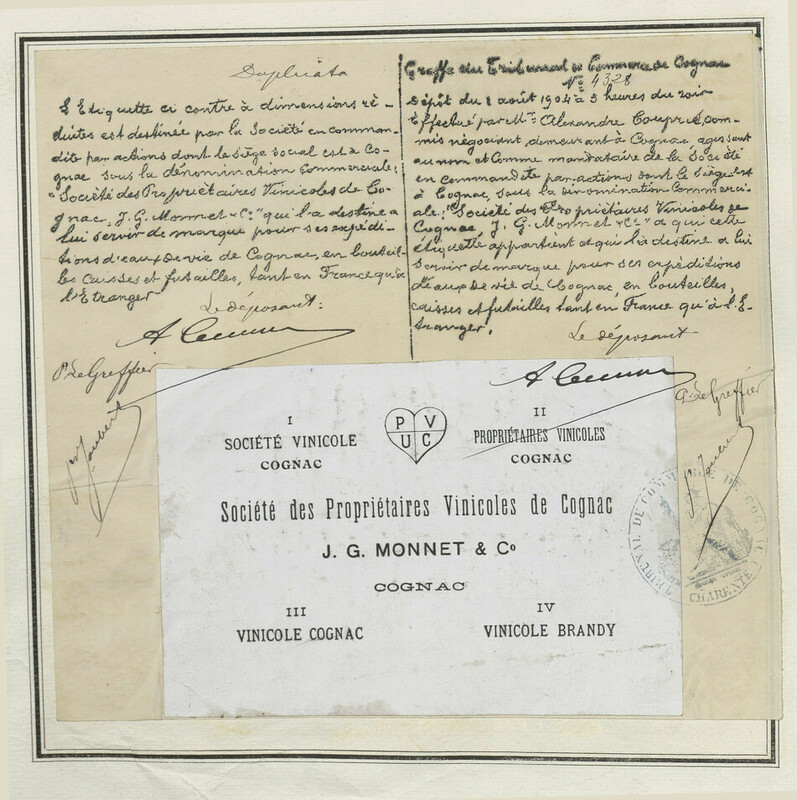 Duplicata
L'Etiquette ci contre à dimensions ré-
duites est destinée par la Société en comman-
dite par actions dont le siège social est à Co-
gnac sous la dénomination Commerciale:
"Société des Propriètaires Vinicoles de Co-
gnac, J. G. Monnet & Cie" qui l'a destine a
lui servir de marque pour ses expédi-
tions d'eaux de vie de Cognac, en bouteil-
les caisses et futailles, tant en France qu'à
l'Etranger
Le déposant:
Pr Le Greffier
Greffe du Tribunal de Commerce de Cognac
No 4328
Dépôt du 8 août 1904 à 3 heures du soir
Effectué par Mr Alexandre Couprie, com-
mis négociant, demeurant à Cognac, agissant
au nom et comme mandataire de la Société
en commandite par actions dont le siège est
à Cognac, sous la dénomination Commerci-
ale: "Société des Propriétaires Vinicoles de
Cognac, J. G. Monnet & Cie" a qui cette
étiquette appartient et qui l'a destine a lui
servir de marque pour ses expéditions
d'eaux de vie de Cognac, en bouteilles,
caisses et futailles tant en France qu'à l'E-
tranger.
Le déposant
Pr Le Greffier
I
SOCIÉTÉ VINICOLE
COGNAC
P V
U C
II
PROPRIÉTAIRES VINICOLES
COGNAC
Société des Propriétaires Vinicoles de Cognac
J. G. MONNET & Co
COGNAC
III
VINICOLE COGNAC
IV
VINICOLE BRANDY
TRIBUNAL DE COMMERCE DE COGNAC
CHARENTE